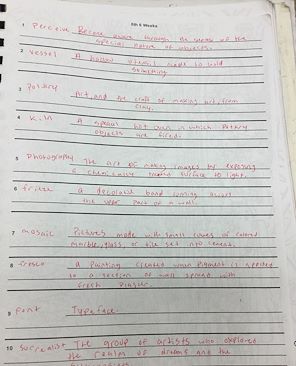 5th 6 Weeks
1 Perceive Become aware through the senses of the
special nature of objects.
2 Vessel A hollow utensil made to hold
something
3 Pottery Art, and the craft of making art, from
clay.
4 Kiln A special hot oven in which Pottery
objects are fired.
5 Photography The art of making images by exposing
a chemically treated surface to light.
6 frieze a decorative band running across
the upper part of a wall.
7 mosaic Pictures made with small cubes of colored
marble, glass, or tile set into cement.
8 fresco a Painting created when Pigment is applied
to a section of wall spread with
fresh Plaster.
9 Font Typeface
10 Surrealist The group of artists who explored
the realm of dreams and the